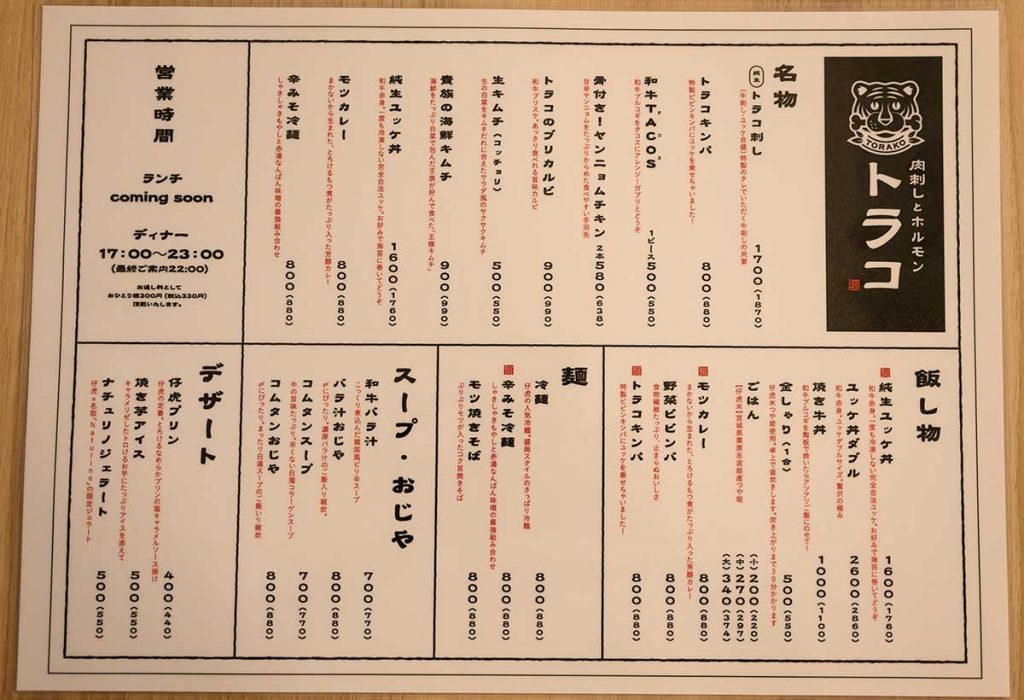 TORAKO
肉刺しとホルモン
トラコ
名物
純生
トラコ刺し
1700(1870)
(牛刺し・ユッケ合盛)特製のタレでいただく牛刺しの共宴
トラコキンパ
800(880)
特製ビビンキンパにユッケを乗せちゃいました!
和牛TACOS
タコス
1ピース500(550)
和牛プルコギをタコスにアレンジ・ガブリとどうぞ
骨付き!ヤンニョムチキン
2本580(638)
甘辛ヤンニョムをたっぷりからめた食べやすい手羽先
トラコのプリカルビ
900(990)
和牛ブリスケ。あっさり食べれる旨味カルビ
生キムチ(コッチョリ)
500(550)
生の白菜をキムチだれに合えたサラダ風のサクサクキムチ
貴族の海鮮キムチ
900(990)
海鮮をたっぷり白菜で包んだ王族が好んで食べた。王様キムチ」
純生ユッケ丼
1600(1760)
和牛赤身。一度も冷凍しない完全合法ユッケ。お好みで海苔に巻いてどうぞ
モツカレー
800(880)
まかないから生まれた、とろけるもつ煮がたっぷり入った芳醇カレー
辛みそ冷麺
800(880)
しゃきしゃきもやしと赤湯なんばん味噌の最強組み合わせ
営業時間
ランチ
coming soon
ディナー
17:00〜23:00
(最終ご案内22:00)
お通し料として
おひとり様300円(税込330円)
頂戴いたします。
飯し物
純生ユッケ丼
1600(1760)
和牛赤身。一度も冷凍しない完全合法ユッケ。お好みで海苔に巻いてどうぞ
ユッケ丼ダブル
2600(2860)
和牛赤身。ユッケダブルサイズ。贅沢の極み
焼き牛丼
1000(1100)
和牛プルコギを陶板で焼いたらアツアツご飯にのせて!
金しゃり(1合)
500(550)
仔虎米つや姫使用。卓上で釜炊きします。炊き上がりまで30分かかります
ごはん
(小)200(220)
(中)270(297)
(大)340(374)
【仔虎米】宮城県栗原志波姫産つや姫
モツカレー
800(880)
まかないから生まれた、とろけるもつ煮がたっぷり入った芳醇カレー
野菜ビビンパ
800(880)
食物繊維たっぷり、止まらぬおいしさ
トラコキンパ
800(880)
特製ビビンキンパにユッケを乗せちゃいました!
麺
冷麺
800(880)
仔虎の人気冷麺。盛岡スタイルのさっぱり冷麺
辛みそ冷麺
800(880)
しゃきしゃきもやしと赤湯なんばん味噌の最強組み合わせ
モツ焼きそば
800(880)
ぷりぷりモツが入ったコク旨焼きそば
スープ・おじや
和牛バラ汁
700(770)
こっくり煮込んだ韓国風ピリ辛スープ
バラ汁おじや
800(880)
〆にぴったり。濃厚バラ汁のご飯入り雑炊。
コムタンスープ
700(770)
牛の旨味たっぷり。辛くない白濁コラーゲンスープ
コムタンおじや
800(880)
〆にぴったり。まったり白湯スープのご飯いり雑炊
デザート
仔虎プリン
400(440)
仔虎の定番。とろけるなめらかプリンの塩キャラメルソース掛け
焼き芋アイス
500(550)
キャラメリゼしたトロける お芋にたっぷりアイスを添えて
ナチュリノジェラート
500(550)
仔虎×名取「Naturino」の限定ジェラート